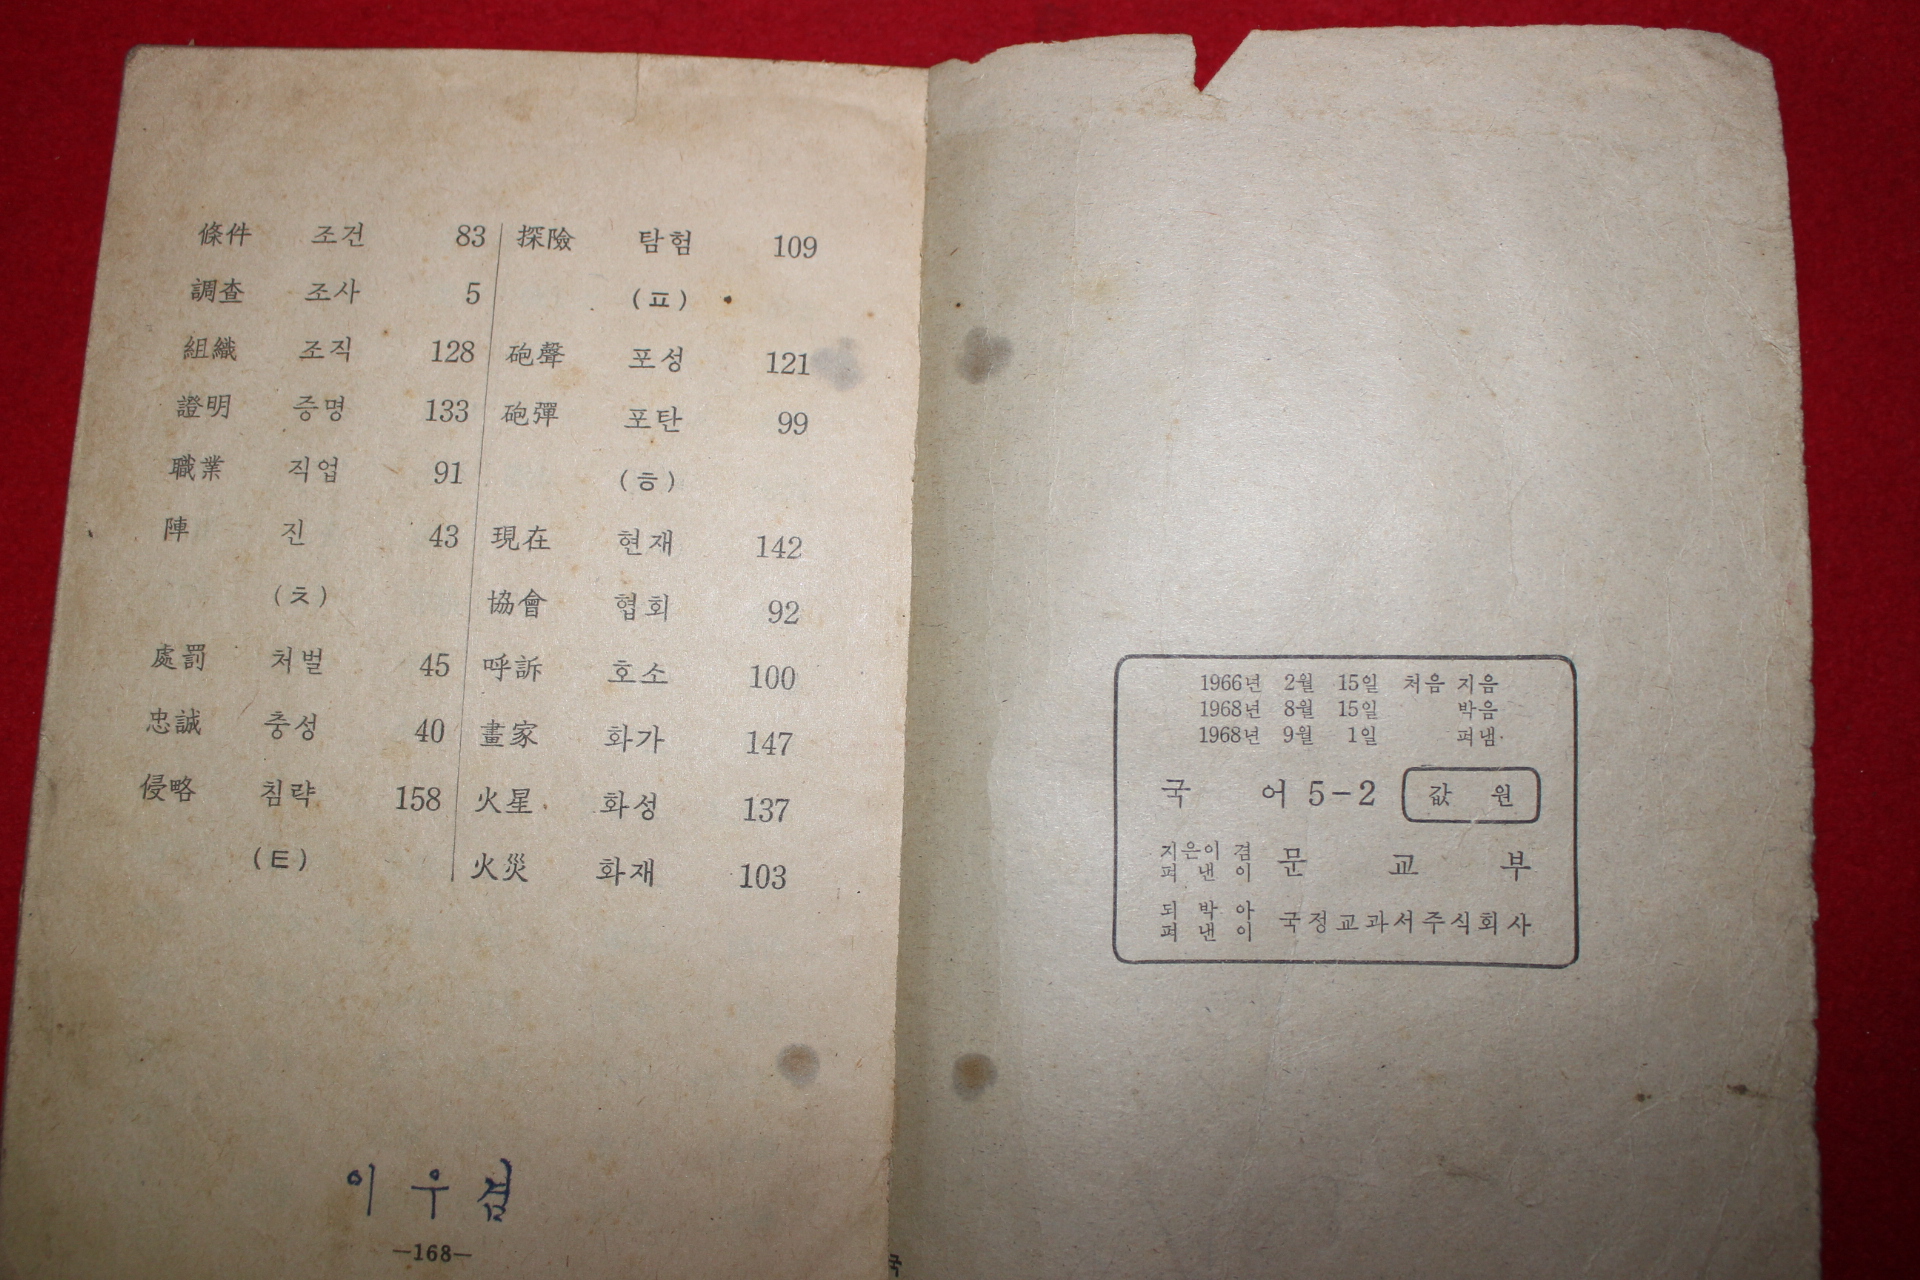 條件 조건 83
調査 조사 5
組織 조직 128
證明 증명 133
職業 직업 91
陣 진 43
(ㅊ)
處罰 처벌 45
忠誠 충성 40
侵略 침략 158
(ㅌ)
探險 탐험 109
(ㅍ)
砲聲 포성 121
砲彈 포탄 99
(ㅎ)
現在 현재 142
協會 협회 92
呼訴 호소 100
畫家 화가 147
火星 화성 137
火災 화재 103
이우겸
—168—
1966년 2월 15일 처음 지음
1968년 8월 15일 박음
1968년 9월 1일 펴냄
국 어 5-2 값 원
지은이 겸
펴 낸 이 문 교 부
되 박 아
펴 낸 이 국정교과서주식회사
국